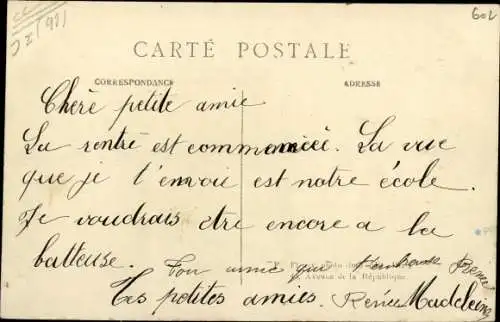 602
CARTE POSTALE
CORRESPONDANCE
ADRESSE
Chère petite amie
La rentré est commencée. La vue
que je t'envoie est notre école.
Je voudrais être encore a la
batteuse. Ton amie qui Renée
Avenue de la République
Tes petites amies. Renée Madeleine